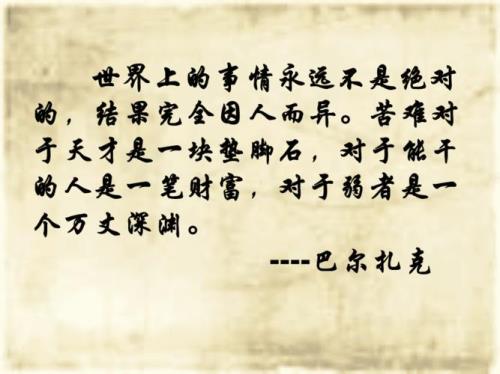 世界上的事情永远不是绝对
的，结果完全因人而异。苦难对
于天才是一块垫脚石，对于能干
的人是一笔财富，对于弱者是一
个万丈深渊。
----巴尔扎克